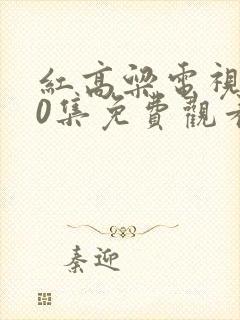 紅高粱電視
0集免費觀
秦迎